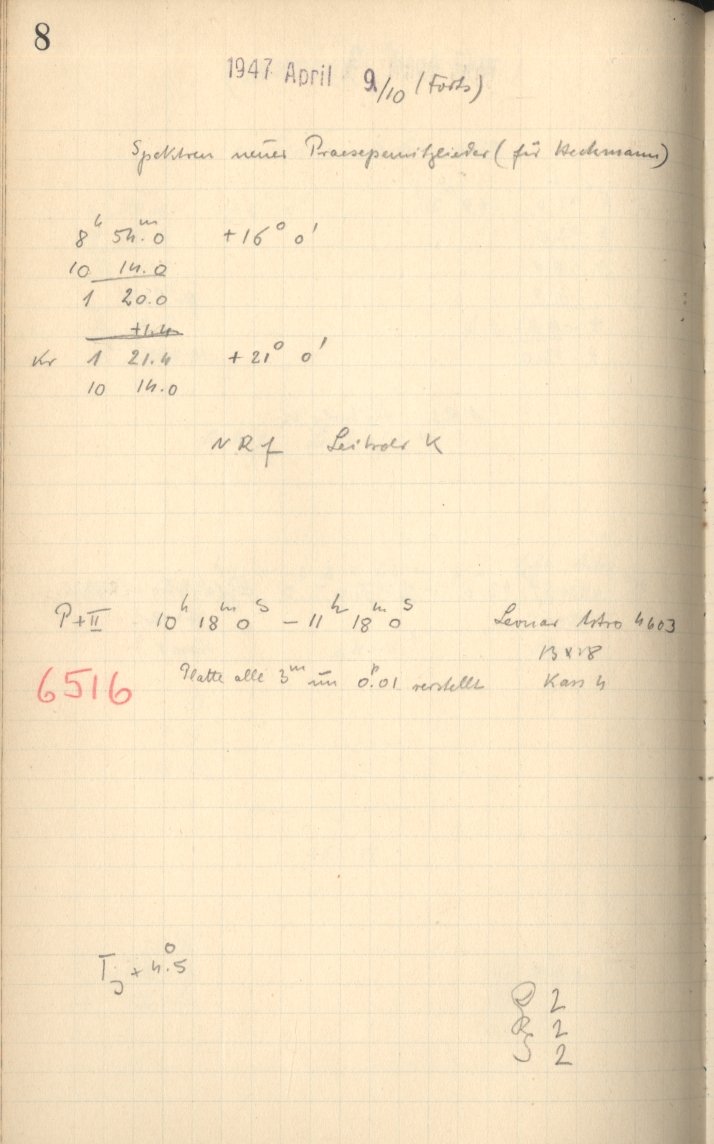 8
1947 April 9/10 (Forts)
Spektren neuer Praesepemitglieder (für Heckmann)
8h 54m.0 +16° 0'
10 14.0
1 20.0
+1.4
Kr 1 21.4 +21° 0'
10 14.0
N R f Leitrohr K
P+II 10h 18m 0s – 11h 18m 0s Leonar Astro 4603
13×18
6516 Platte alle 3m um 0p.01 verstellt Kass 4
T +4°.5
2
R 2
S 2